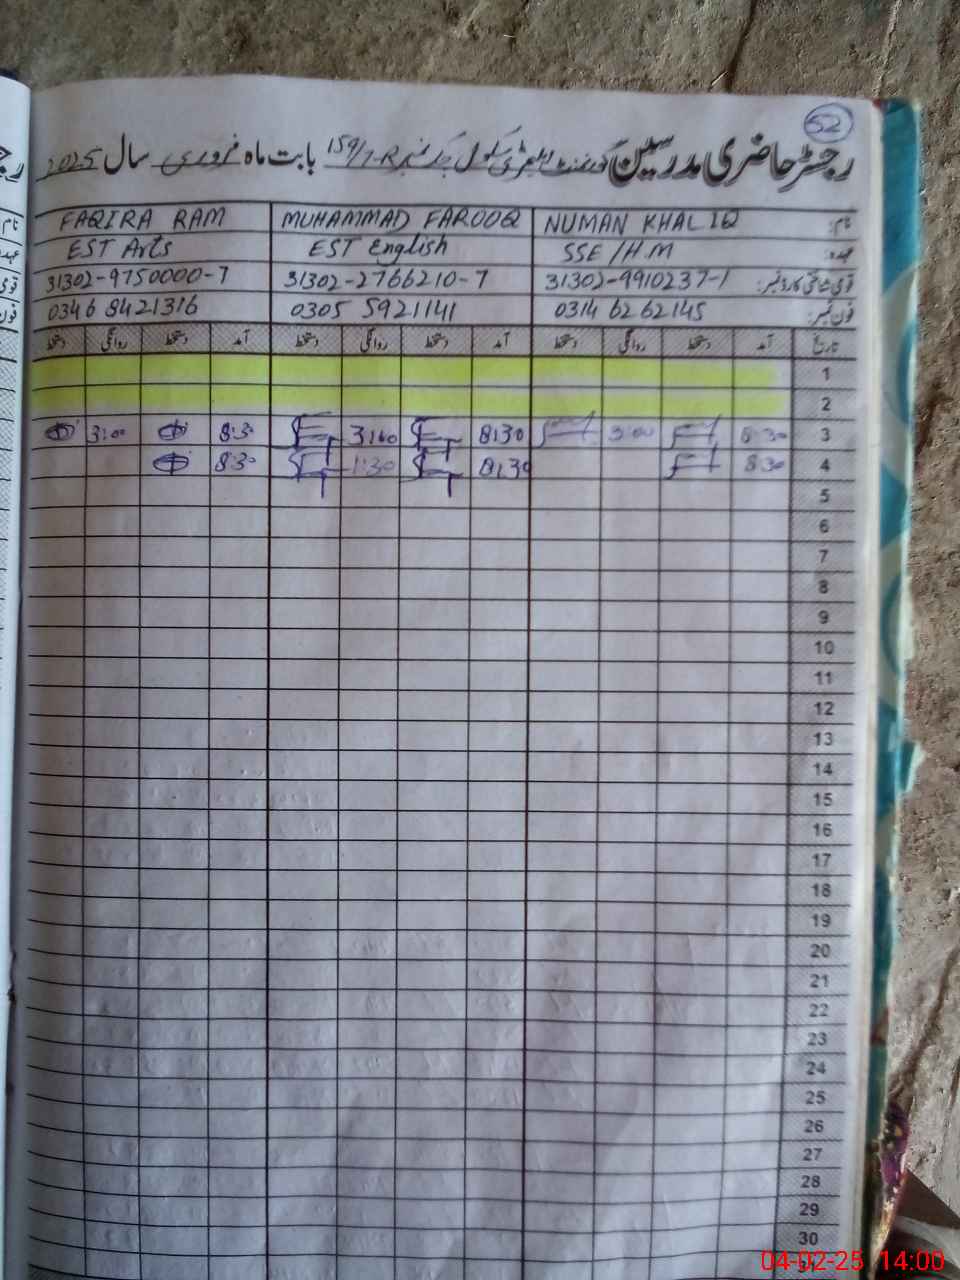 52
رجسٹر حاضری مدرسین گورنمنٹ ایلیمنٹری سکول چک نمبر 159/7-R بابت ماہ فروری سال 2025
نام: NUMAN KHALIQ MUHAMMAD FAROOQ FAQIRA RAM
عہدہ: SSE/H.M EST English EST Arts
قومی شناختی کارڈ نمبر: 31302-9910237-1 31302-2766210-7 31302-9750000-7
فون نمبر: 0314 6262145 0305 5921141 0346 8421316
تاریخ آمد دستخط روانگی دستخط آمد دستخط روانگی دستخط آمد دستخط روانگی دستخط
1
2
3 8:30 3:00 8:30 3:00 8:30 3:00
4 8:30 8:30 1:30 8:30
5
6
7
8
9
10
11
12
13
14
15
16
17
18
19
20
21
22
23
24
25
26
27
28
29
30
04-02-25 14:00